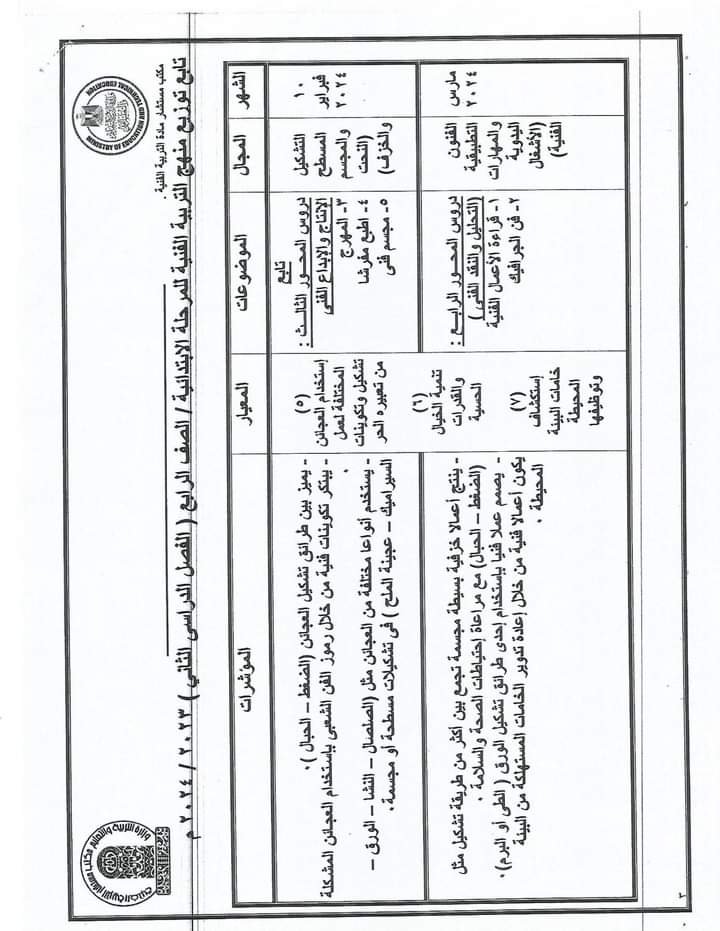 MINISTRY OF EDUCATION
مكتب مستشار مادة التربية الفنية .
تابع توزيع منهج التربية الفنية للمرحلة الابتدائية / الصف الرابع ( الفصل الدراسى الثاني ) ٢٠٢٣ / ٢٠٢٤ م
الشهر
المجال
الموضوعات
المعيار
المؤشرات
١٠
فبراير
٢٠٢٤
التشكيل
المسطح
والمجسم
(النحت
والخزف)
تابع
دروس المحور الثالث :
الإنتاج والإبداع الفنى
٣- المهرج
٤- اطبع مفرشا
٥- مجسم فنى
(٥)
إستخدام العجائن
المختلفة لعمل
تشكيل وتكوينات
من تعبيره الحر
- يميز بين طرائق تشكيل العجائن (الضغط – الحبال ).
- يبتكر تكوينات فنية من خلال رموز الفن الشعبى بإستخدام العجائن المشكلة
.
- يستخدم أنواعا مختلفة من العجائن مثل (الصلصال – النشا – الورق –
السيراميك – عجينة الملح ) فى تشكيلات مسطحة أو مجسمة.
مارس
٢٠٢٤
الفنون
التطبيقية
والمهارات
اليدوية
(الأشغال
الفنية)
دروس المحور الرابع :
(التحليل والنقد الفنى )
١- قراءة الأعمال الفنية
٢- فن الجرافيك
(٦)
تنمية الخيال
والقدرات
الحسية
(٧)
إستكشاف
خامات البيئة
المحيطة
وتوظيفها
- ينتج أعمالا خزفية بسيطة مجسمة تجمع بين أكثر من طريقة تشكيل مثل
(الضغط – الحبال) مع مراعاة إحتياطات الصحة والسلامة .
- يصمم عملا فنيا بإستخدام إحدى طرائق تشكيل الورق ( الطى أو البرم).
يكون أعمالا فنية من خلال إعادة تدوير الخامات المستهلكة من البيئة
المحيطة .
٣